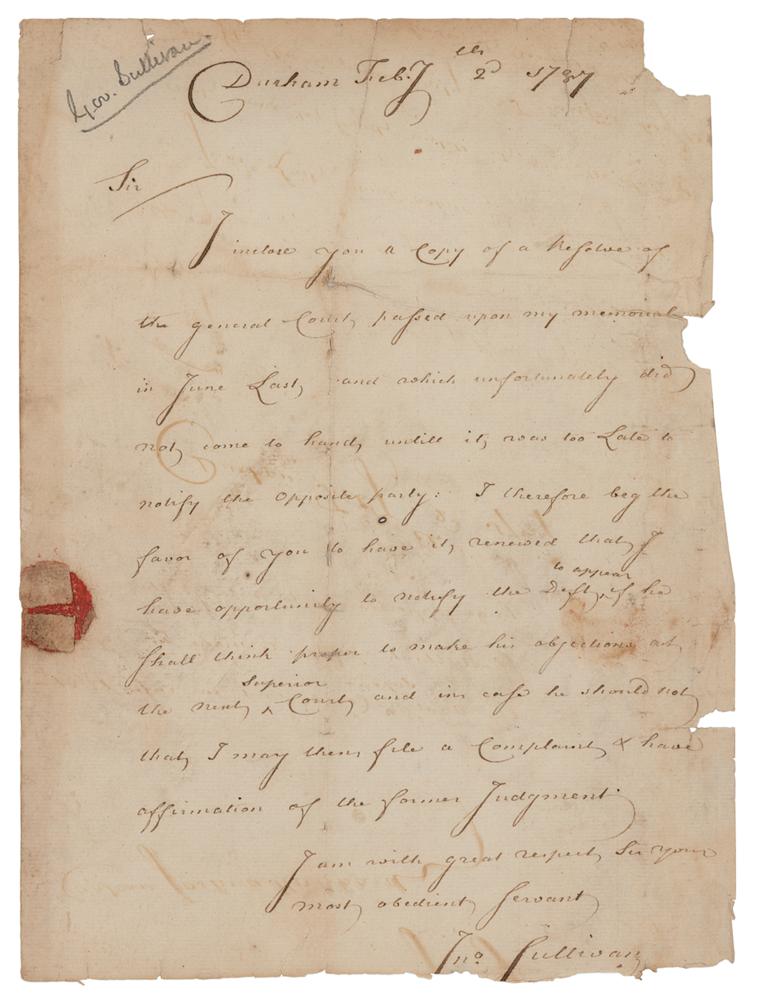 Gov. Sullivan.
Durham Feb.y 2d 1787
Sir
I inclose you a Copy of a Resolve of
the general Court passed upon my memorial
in June Last, and which unfortunately did
not come to hand, untill it, was too Late to
notify the opposite party: I therefore beg the
favor of you to have it, renewed that, I
to appear
have opportunity to notify the Deft, if he
shall think proper to make his objections at,
superior
the next ^ Court, and in case he should not
that, I may then, file a Complaint, & have
affirmation of the former Judgment.
I am with great respect, Sir your
most obedient, Servant
Jno. Sullivan